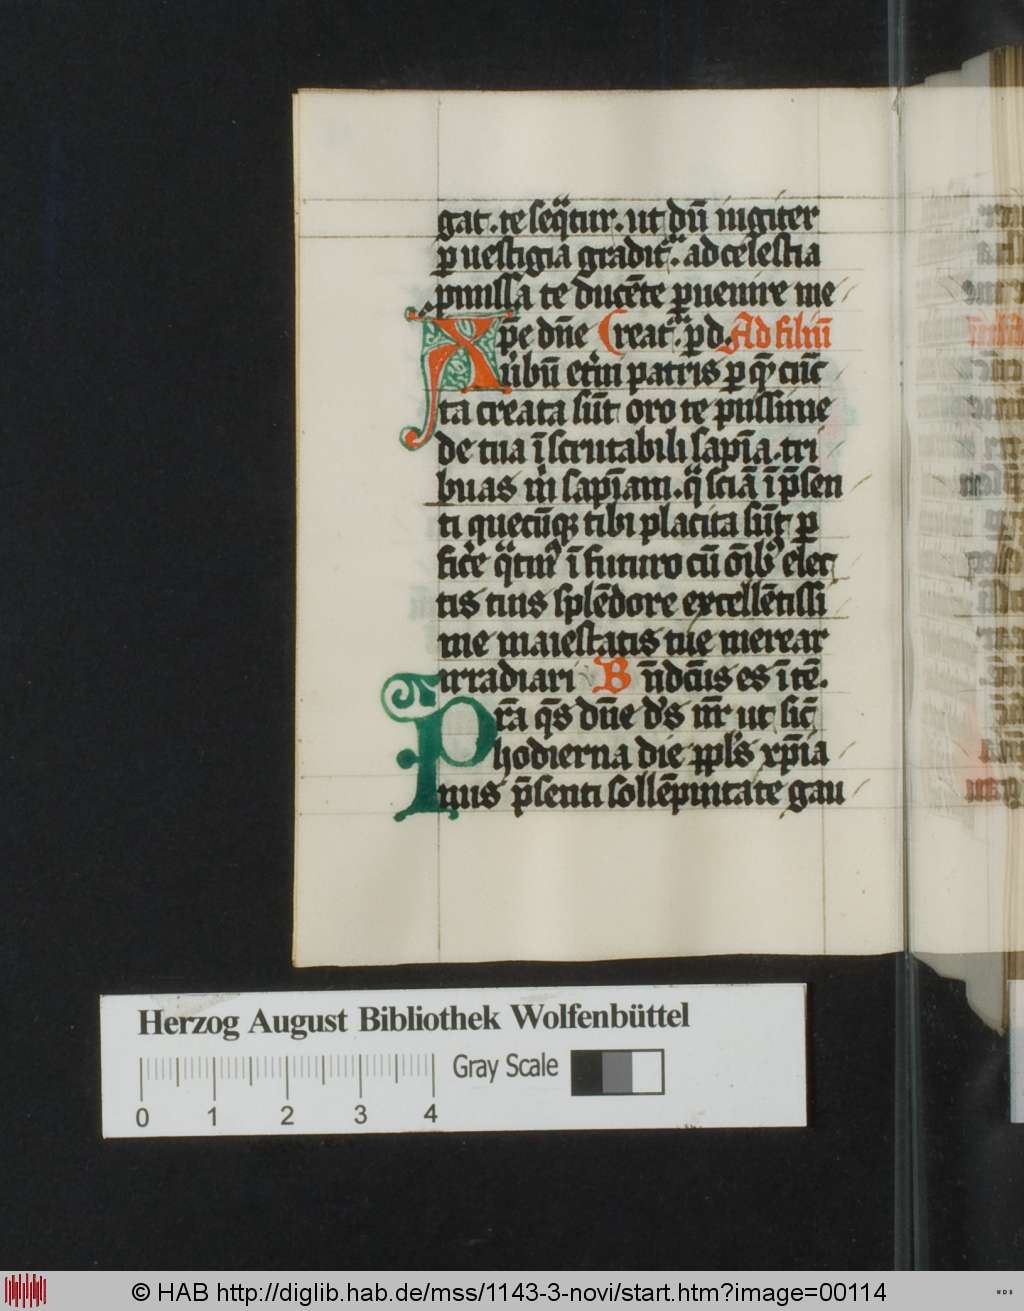 gat. te seqͣtur. ut dū iugiter
ꝑ uestigia gradit᷑. ad celestia
ꝓmissa te ducēte ꝑuenire me
Xp̄e dn̄e Creat᷑. ꝑd. Ad filiū
ūibū et̓ni patris ꝑ qͫ cūc
ta creata sūt oro te piissime
de tua īscrutabili sapīa. tri
buas m̓ sapīam. qͣ sciā ī p̄sen
ti quecūqꝫ tibi placita sūt ꝑ
fic̓e qͣtinꝰ ī futuro cū oībꝰ elec
tis tuis splēdore excellētissi
me maiestatis tue merear
irradiari B n̄dc̄us es ī tē.
Pr̄a qs̄ dn̄e dꝰs nr̄ ut sic̄
hodierna die ppl̓s xp̄ia
nus p̄senti sollēpnitate gau
Herzog August Bibliothek Wolfenbüttel
Gray Scale
0 1 2 3 4
© HAB http://diglib.hab.de/mss/1143-3-novi/start.htm?image=00114